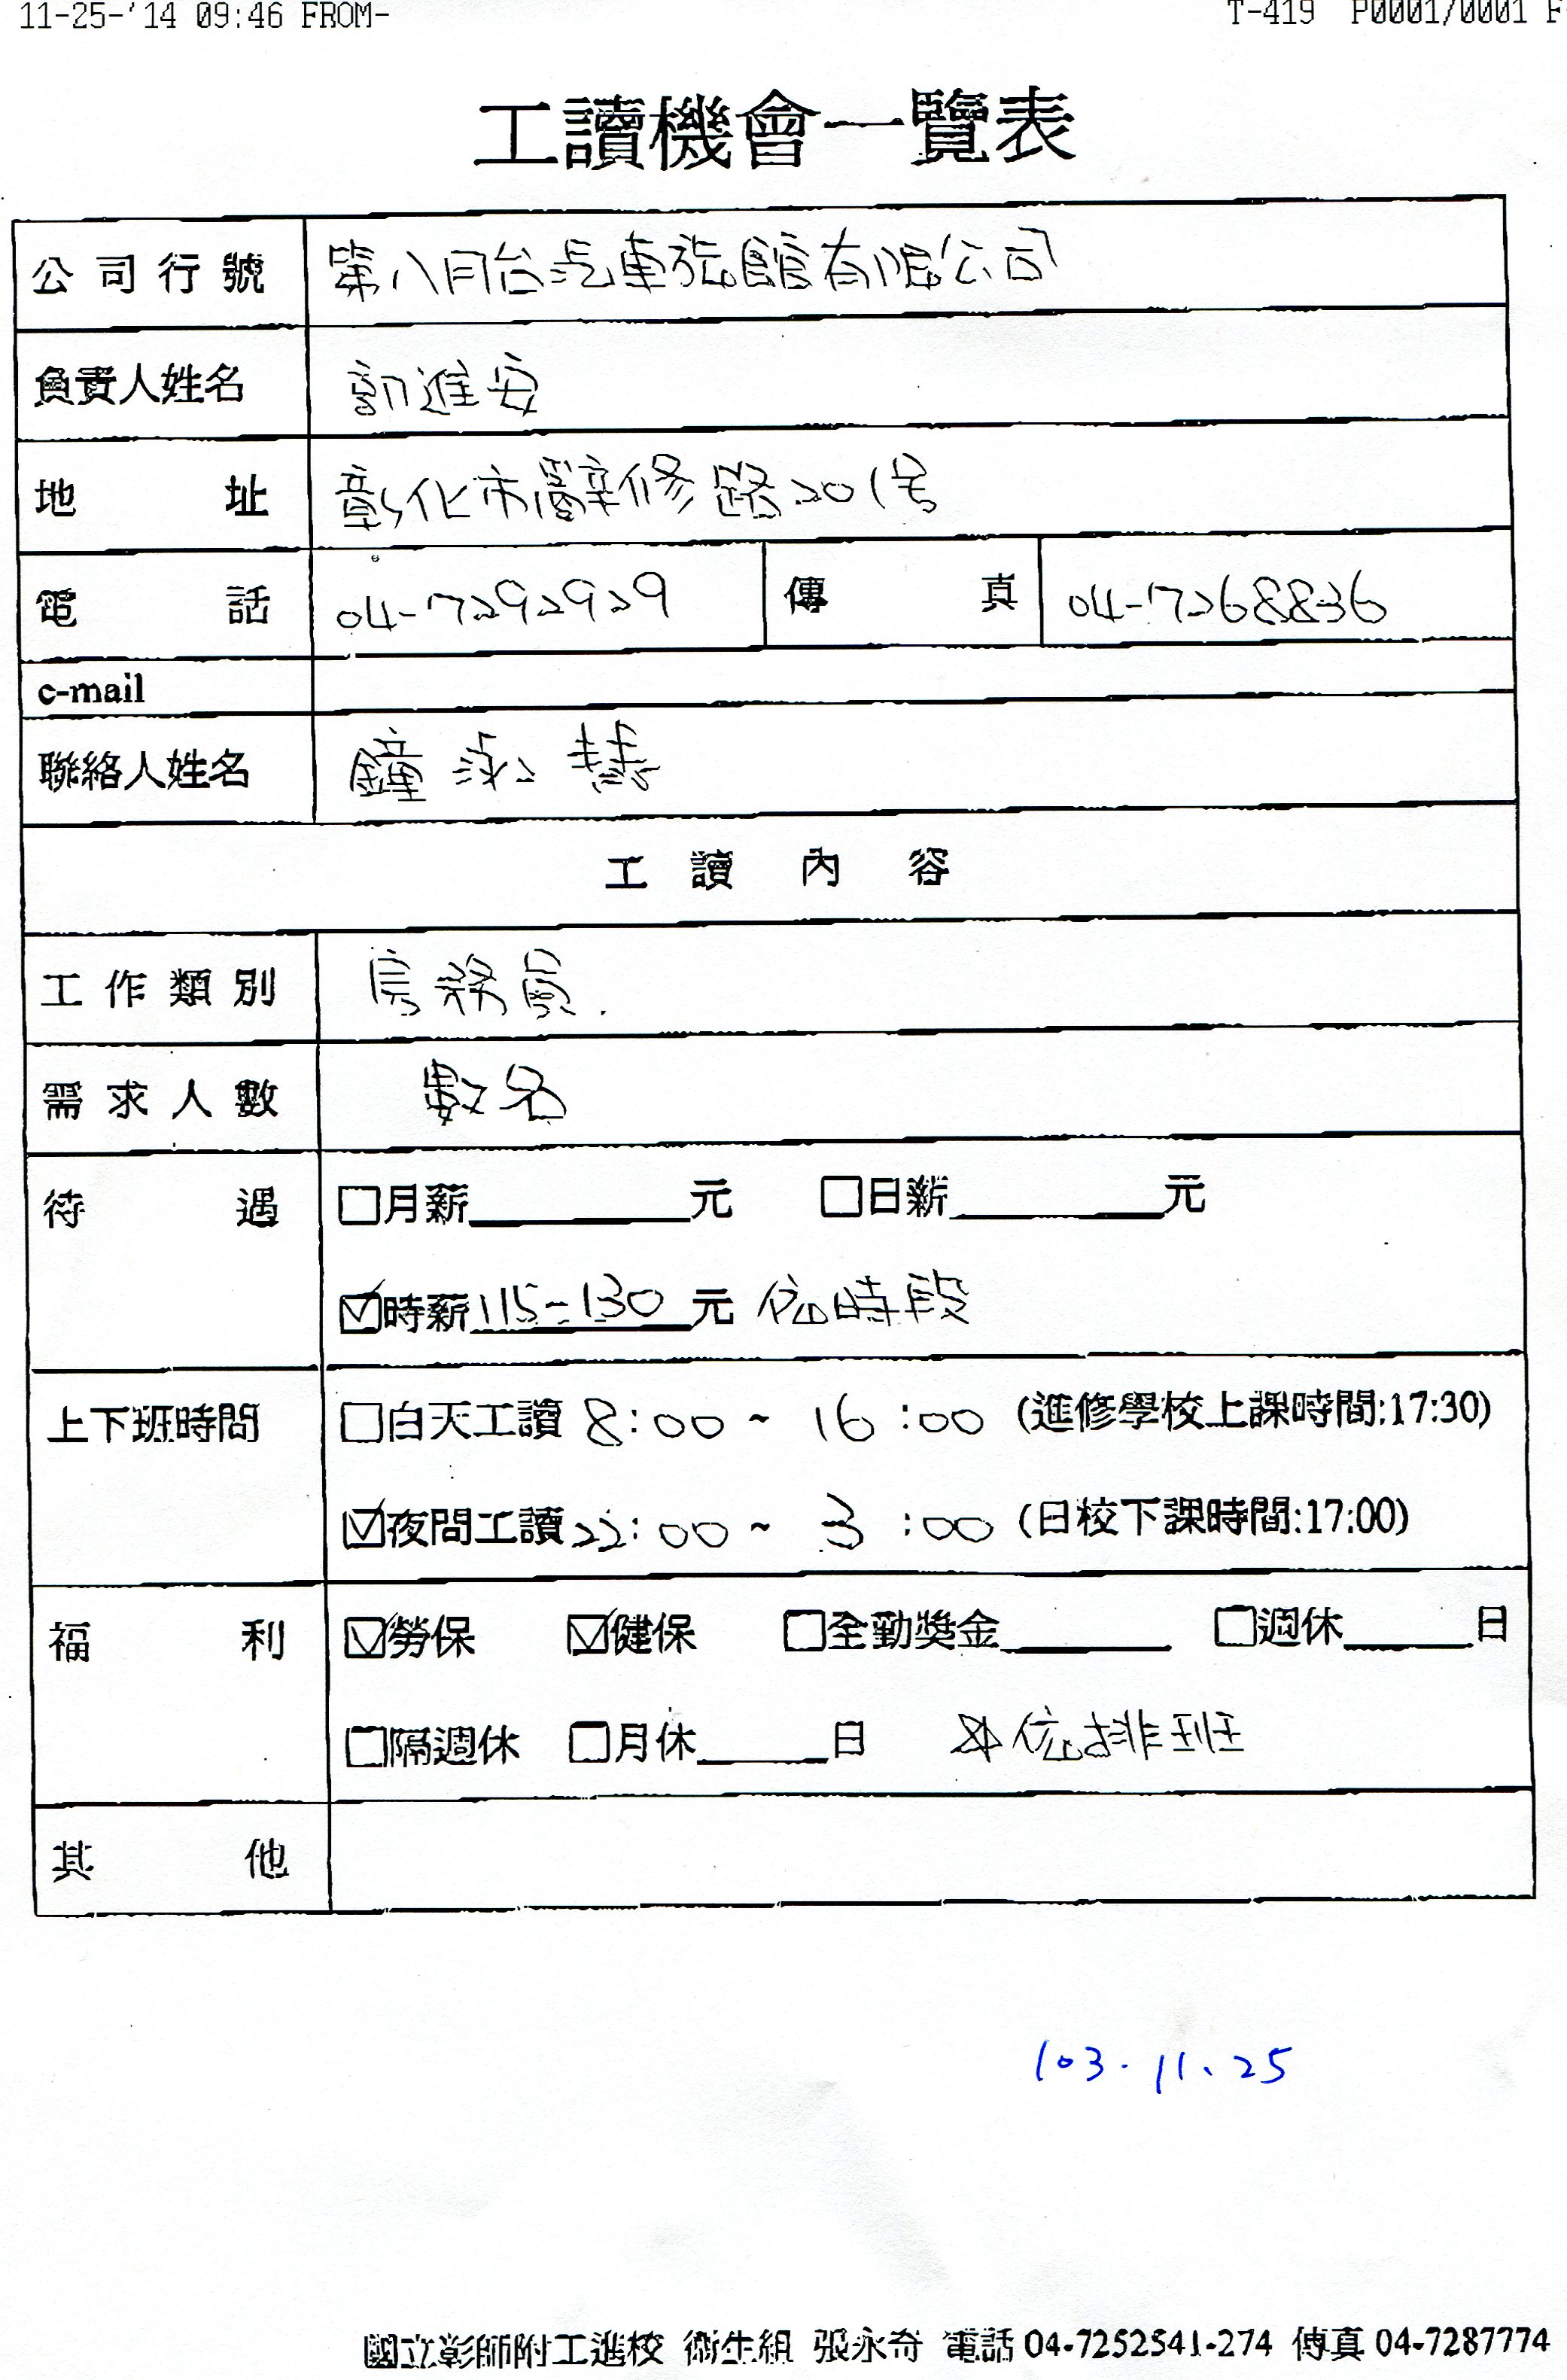 11-25-'14 09:46 FROM-
T-419 P0001/0001 F
工讀機會一覽表
公司行號 第八月台汽車旅館有限公司
負責人姓名 郭進安
地址 彰化市彰辭修路201号
電話 04-7292929 傳真 04-7268836
e-mail
聯絡人姓名 鐘泳慧
工讀內容
工作類別 房務員.
需求人數 數名
待遇 □月薪____元 □日薪____元
☑時薪115-130元 依時段
上下班時間 □白天工讀 8:00 ~ 16:00 (進修學校上課時間:17:30)
☑夜間工讀 22:00 ~ 3:00 (日校下課時間:17:00)
福利 ☑勞保 ☑健保 □全勤獎金____ □週休____日
□隔週休 □月休____日 ※依排班
其他
103.11.25
國立彰師附工進校 衛生組 張永奇 電話 04-7252541-274 傳真 04-7287774